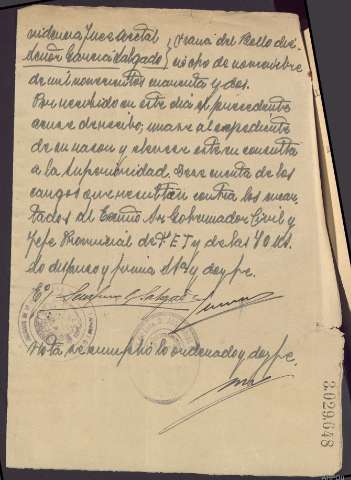 videncia Juez acctal
Señor Garcia Salgado
} Franá del Bollo die-
ciocho de noviembre
de mil novecientos cuarenta y dos.
Por recibido en este dia el precedente
acuse de recibo; unase al expediente
de su razon y elevese este en consulta
a la Superioridad. Dese cuenta de los
cargos que resultan contra los encar-
tados al Excmo. Sr. Gobernador Civil y
Jefe Provincial de F.E.T. y de las J.O.N.S.
Lo dispuso y firma S. Sª y doy fe.
Salgado
Nota. Se cumplió lo ordenado y doy fe.
3.029.648